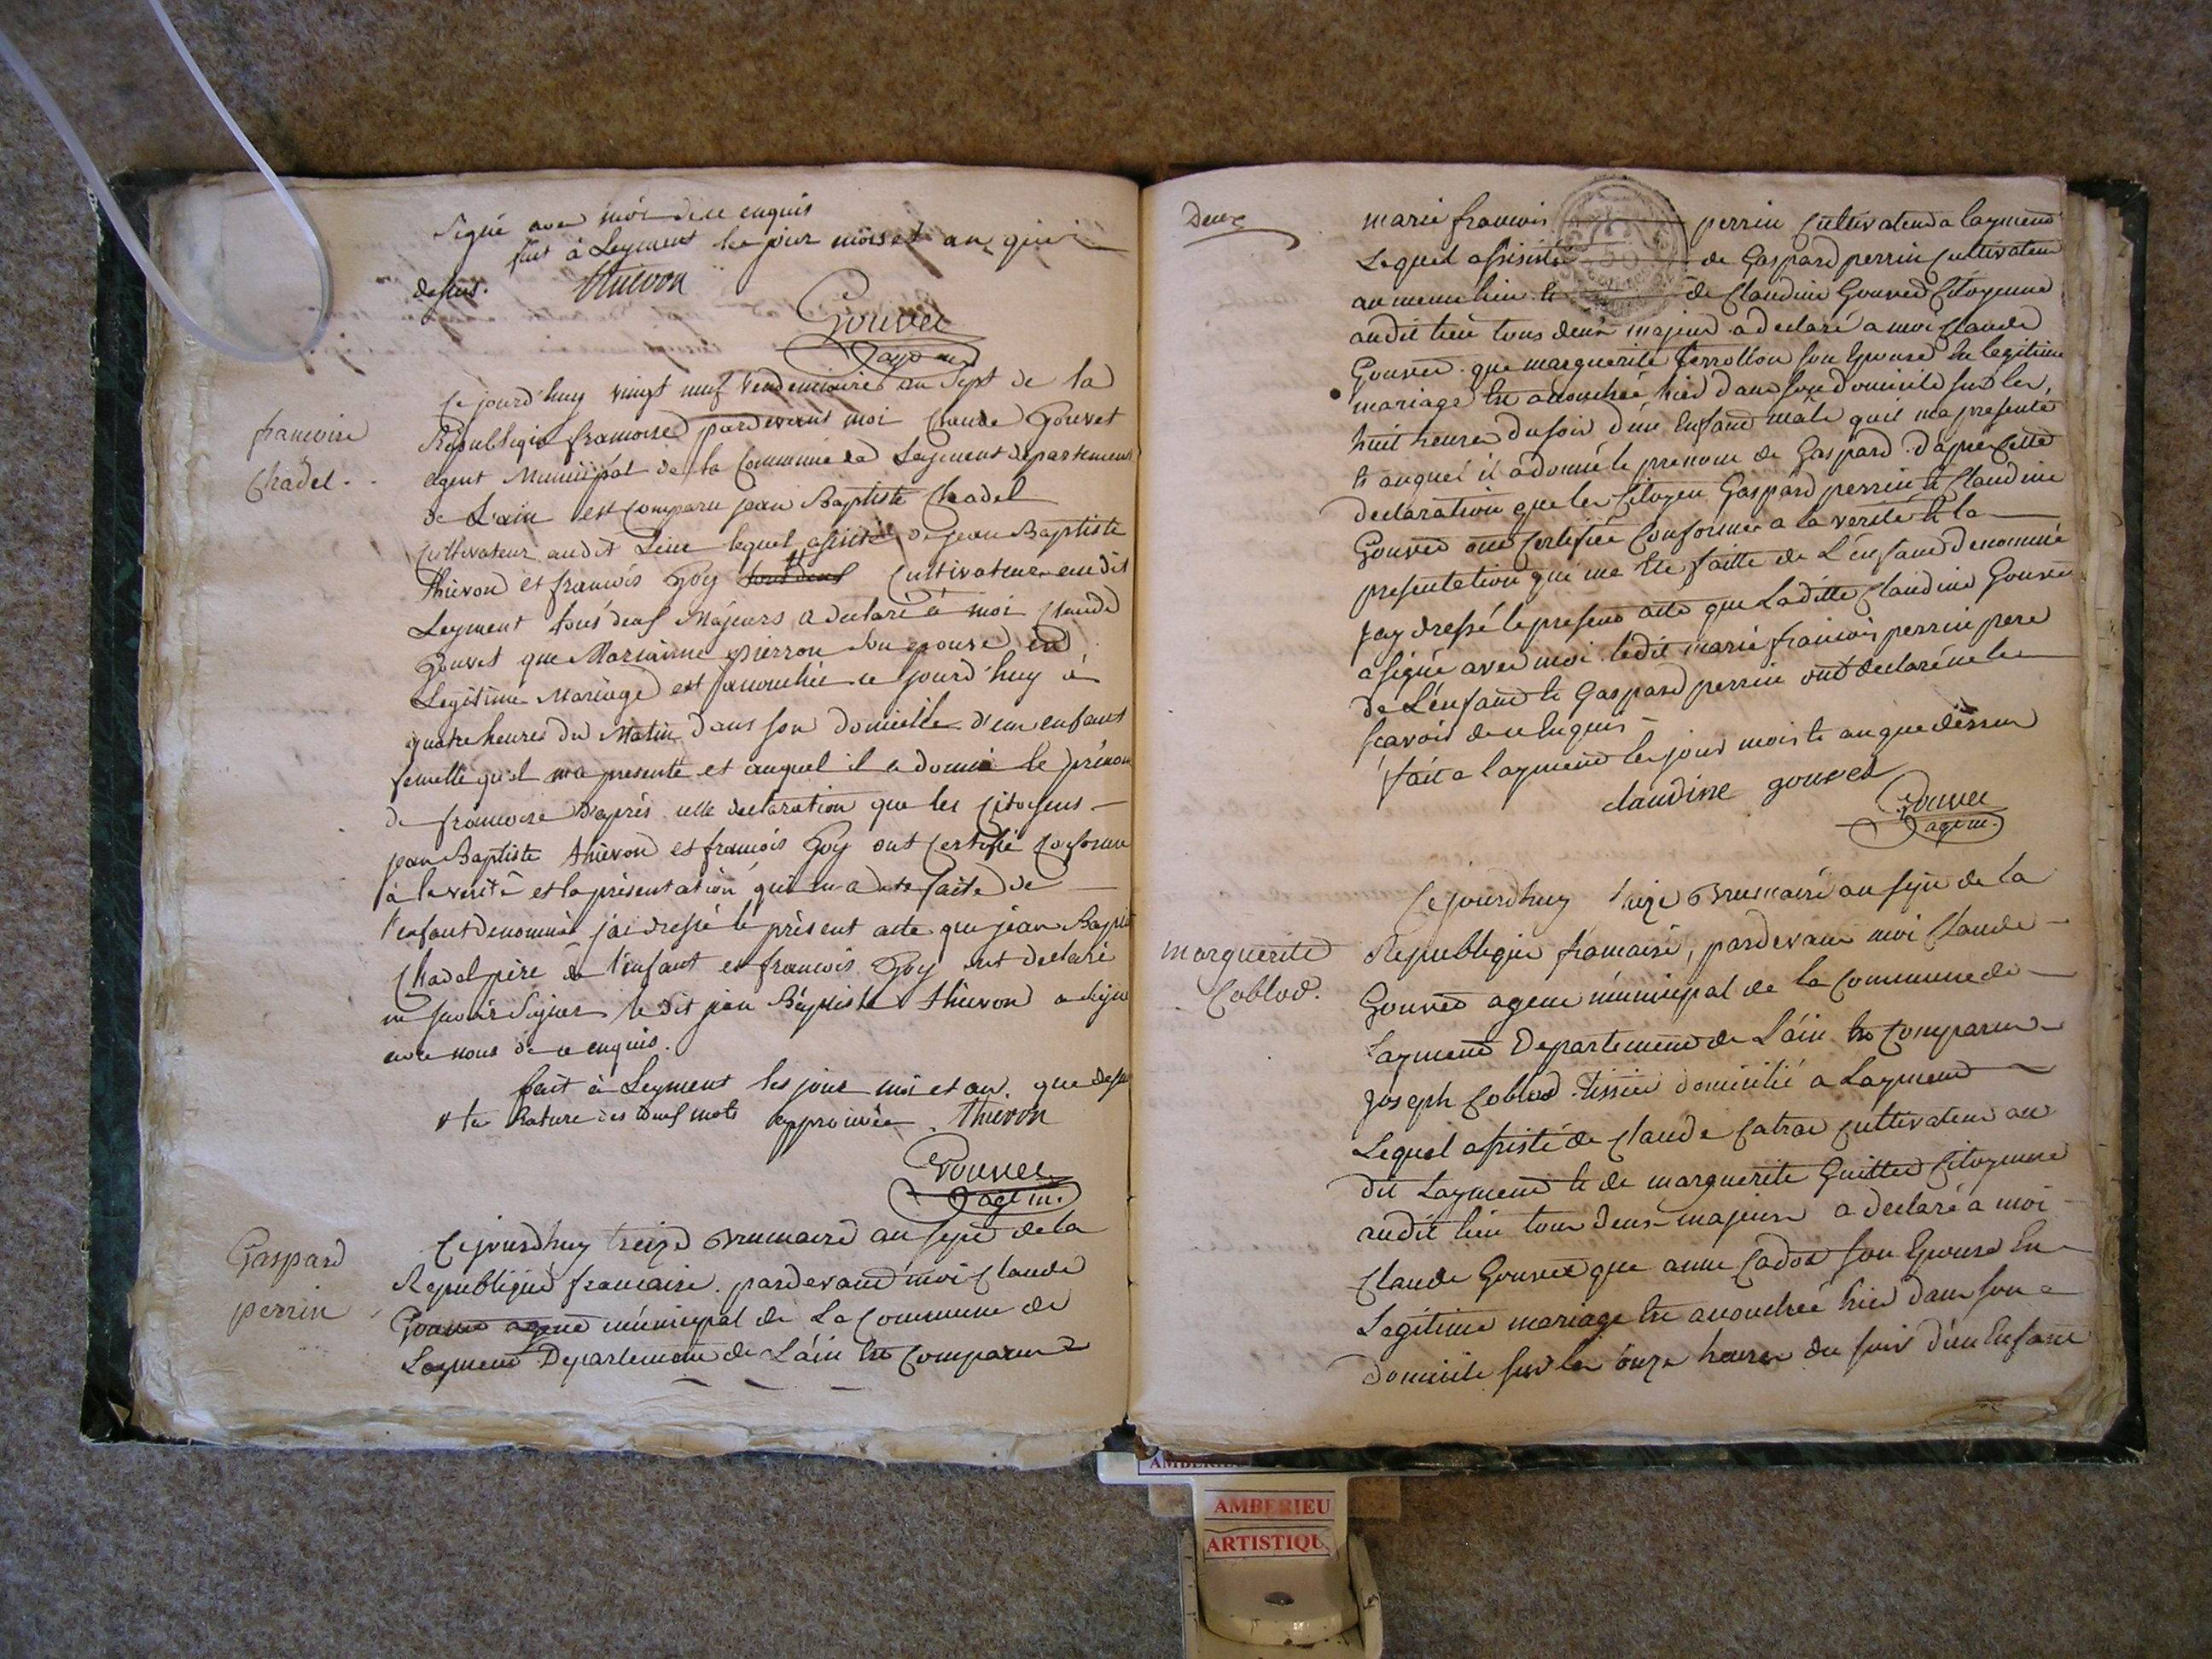 Signé avec moi de ce enquis
fait à Leyment les jour mois et an que
dessus. thievon
Gouvet
age m.
francoise
Chadel.
Ce jourd'huy vingt neuf vendemiaire an Sept de la
Republique francoise pardevant moi Claude Gouvet
agent Municipal de la Commune de Leyment departement
de L'ain est comparu jean Baptiste Chadel
cultivateur audit Lieu lequel assisté de jean Baptiste
thievon et francois Goy tous deux Cultivateur audit
Leyment tous deux Majeurs a declaré à moi Claude
Gouvet que Marianne pierron son epouse en
Legitime Mariage est accouchée ce jourd'huy à
quatre heures du Matin dans son domicille d'un enfant
femelle qu'il m'a presenté et auquel il a donné le prénom
de francoise d'après cette declaration que les Citoyens
jean Baptiste thievon et francois Goy ont certifié conforme
à la verité et la présentation qui m'a été faite de
l'enfant denommé j'ai dressé le présent acte que jean Baptist
Chadel père de l'enfant et francois Goy ont declaré
ne savoir Signer le dit jean Baptiste thievon a signé
avec nous de ce enquis.
fait à Leyment les jour moi et an que dessu
la Rature des deux mots approuvée. thievon
Gouvet
age m.
Gaspard
perrin
Cejourdhuy treize Brumaire an sept de la
Republique francaise pardevant moi Claude
Gouvet agent municipal de La Commune de
Layment Departement de L'ain est comparu
Deux
marie francois perrin cultivateur a layment
Lequel assisté de Gaspard perrin cultivateur
au meme lieu et de Claudine Gouvet Citoyenne
audit lieu tous deux majeur a declaré a moi Claude
Gouvet que marguerite son Epouse En legitime
mariage est accouchée hier dans son domicile sur les
huit heures du soir d'un Enfant mâle quil ma presenté
et auquel il a donné le prenom de Gaspard d'apres cette
declaration que les Citoyen Gaspard perrin et Claudine
Gouvet ont certifiée conforme a la verité et la
presentation qui ma ete faitte de L'enfant denommé
jay dressé le present acte que Laditte Claudine Gouvet
a signé avec moi ledit marie francois perrin pere
de L'enfant et Gaspard perrin ont declaré ne le
scavoir de ce Enquis
fait a layment les jour mois et an que dessus
claudine gouvet
Gouvet
age m.
marguerite
Coblod.
Cejourdhuy seize Brumaire an sept de la
Republique francaise, pardevant moi Claude
Gouvet agent municipal de la Commune de
Layment Departement de L'ain est Comparu
Joseph Coblod tissier domicilié a Layment
Lequel assisté de Claude Catrae Cultivateur au
dit Layment et de marguerite Guittet Citoyenne
audit lieu tous deux majeurs a declaré a moi
Claude Gouvet que anne Cados son Epouse En
Legitime mariage est accouchée hier dans son
domicile sur les onze heures du soir d'un Enfant
AMBERIEU
ARTISTIQU